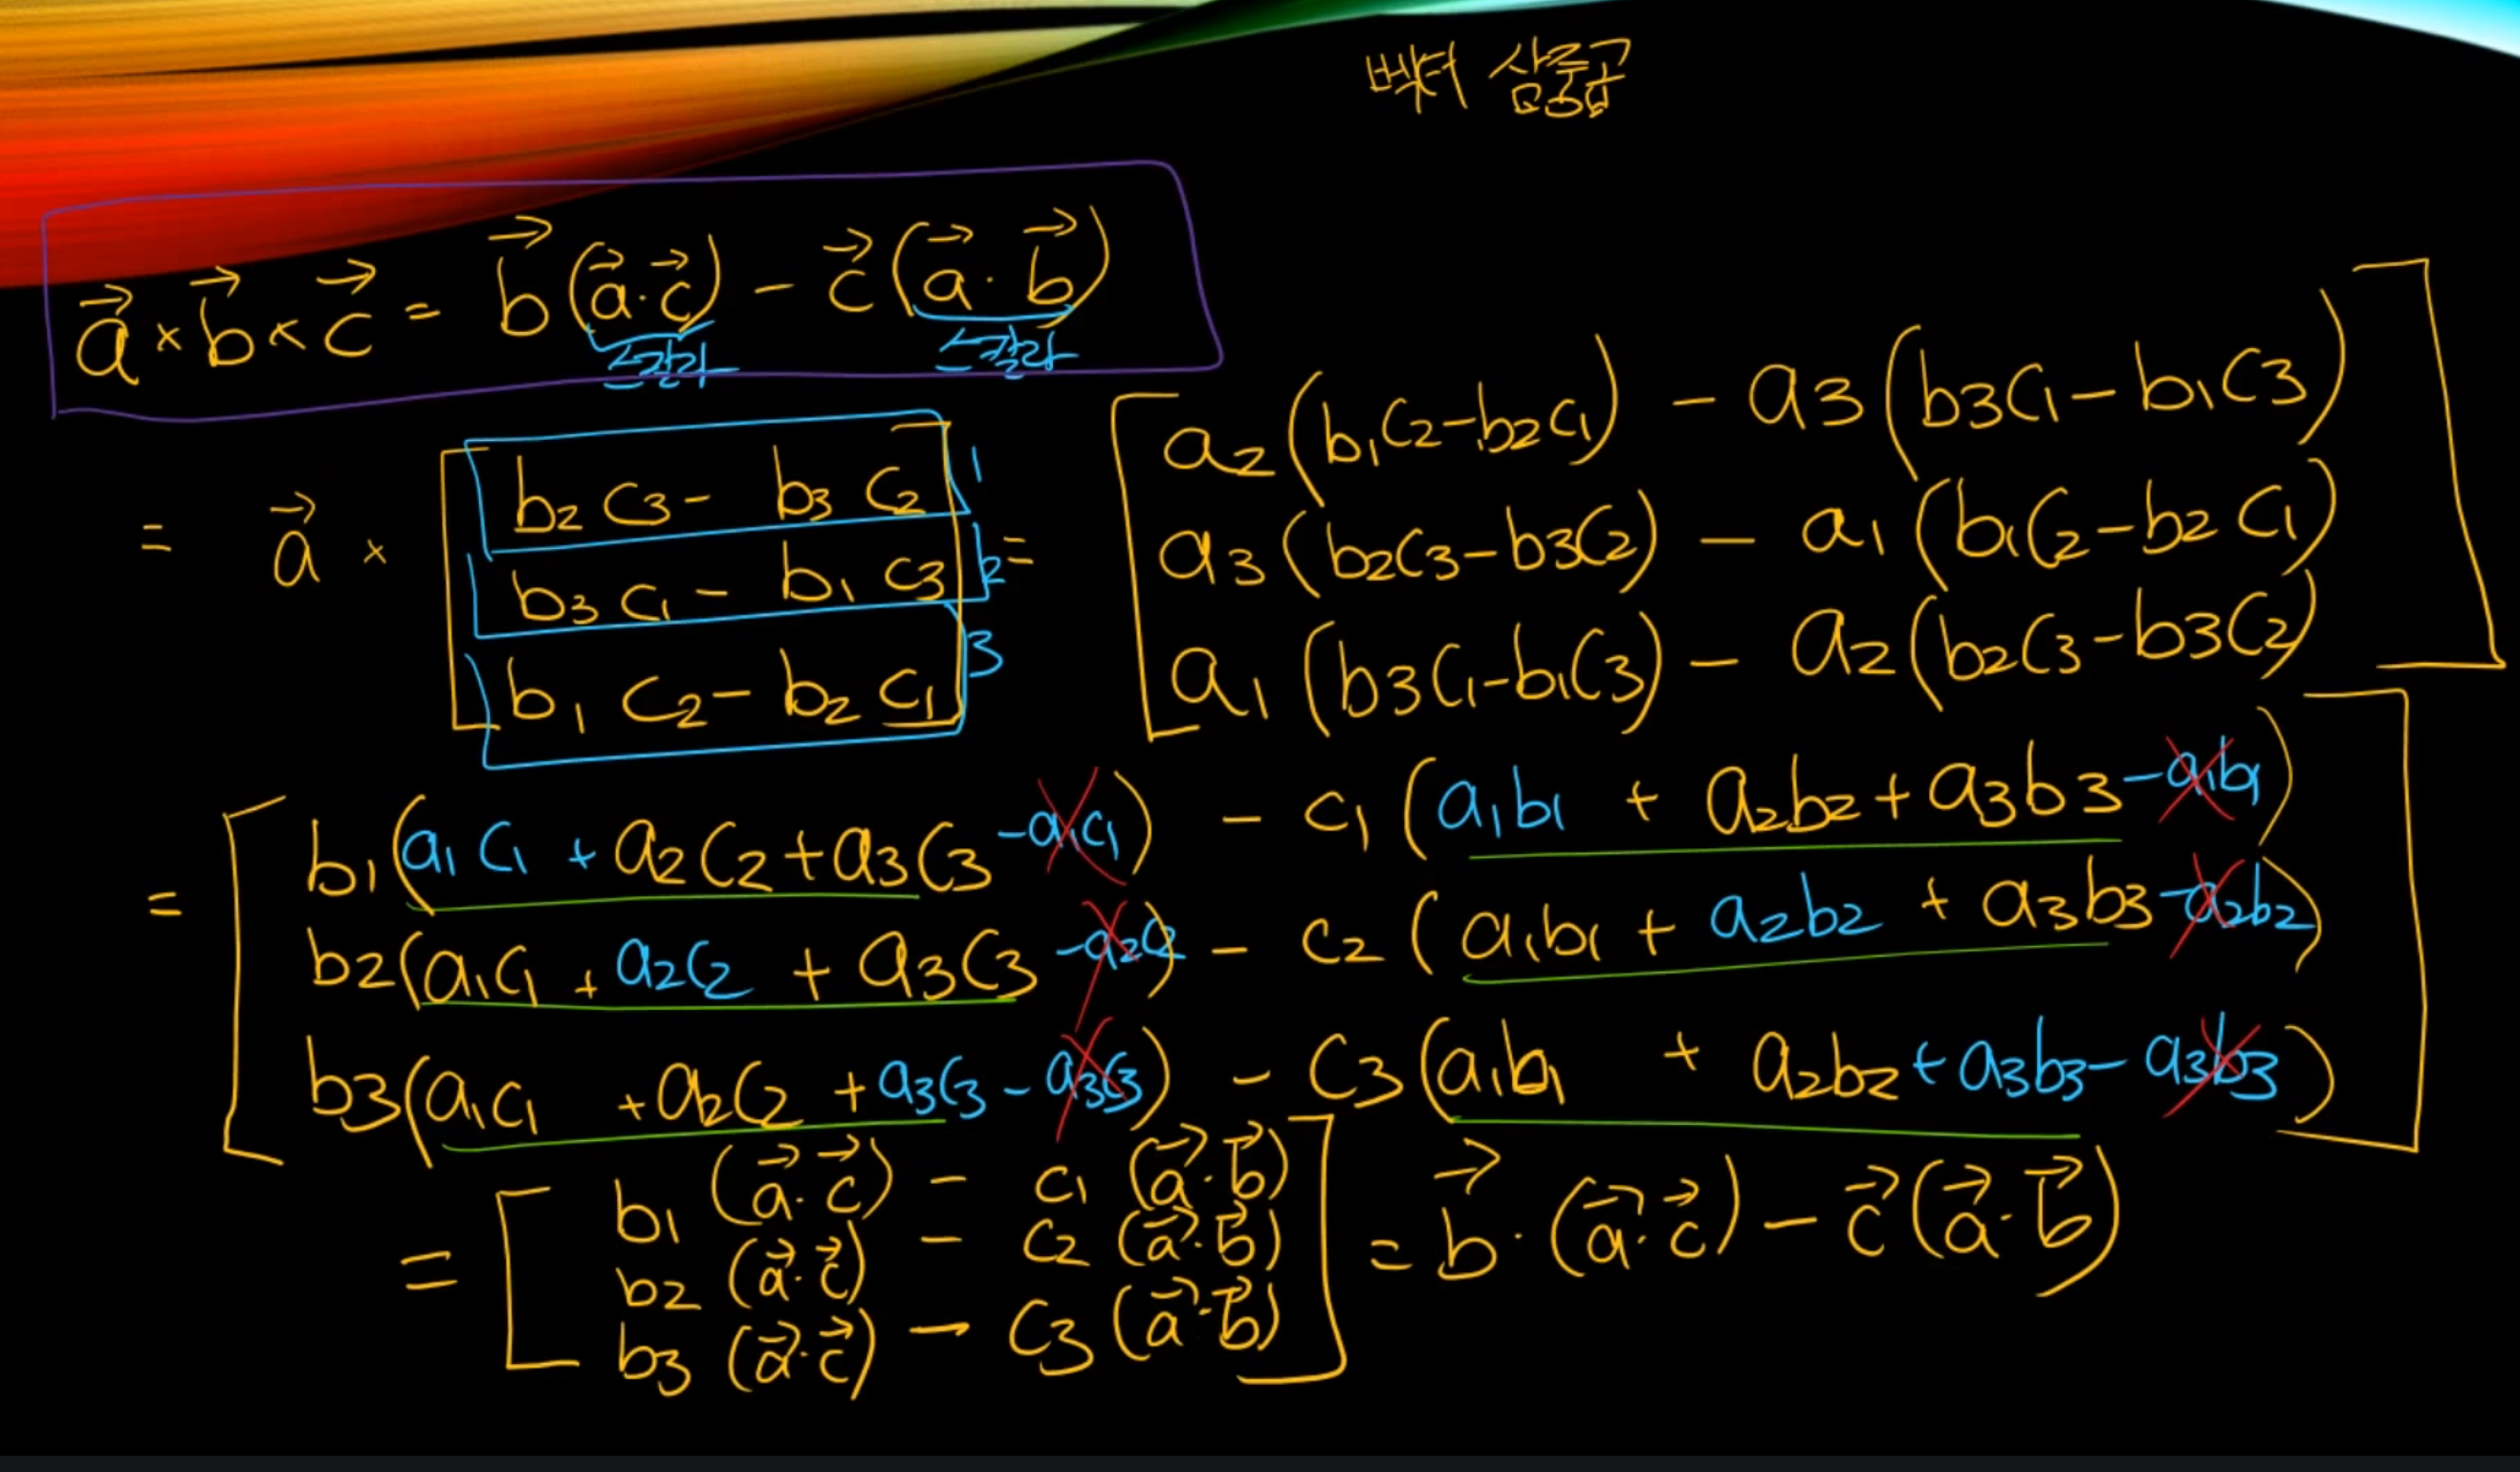 벡터 삼중곱
a⃗ × b⃗ × c⃗ = b⃗ (a⃗ · c⃗) − c⃗ (a⃗ · b⃗)
스칼라 스칼라
= a⃗ × [ b2 c3 − b3 c2 1
b3 c1 − b1 c3 2
b1 c2 − b2 c1 ] 3
= [ a2 (b1c2 − b2c1) − a3 (b3c1 − b1c3)
a3 (b2c3 − b3c2) − a1 (b1c2 − b2c1)
a1 (b3c1 − b1c3) − a2 (b2c3 − b3c2) ]
= [ b1 (a1c1 + a2c2 + a3c3 − a1c1) − c1 (a1b1 + a2b2 + a3b3 − a1b1)
b2 (a1c1 + a2c2 + a3c3 − a2c2) − c2 (a1b1 + a2b2 + a3b3 − a2b2)
b3 (a1c1 + a2c2 + a3c3 − a3c3) − c3 (a1b1 + a2b2 + a3b3 − a3b3) ]
= [ b1 (a⃗ · c⃗) − c1 (a⃗ · b⃗)
b2 (a⃗ · c⃗) − c2 (a⃗ · b⃗)
b3 (a⃗ · c⃗) − c3 (a⃗ · b⃗) ]
= b⃗ · (a⃗ · c⃗) − c⃗ (a⃗ · b⃗)